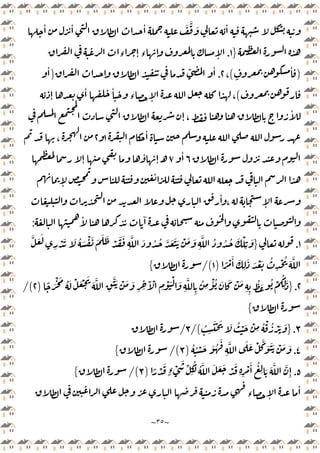 وبه لا يشكل فيه شبهة أنه تعالى وقَّف عليه جملة أحداث الطلاق التي أنزل من أجلها
هذه السورة العظيمة (١. الإمساك بالمعروف وإنهاء إجراءات الرغبة في الفراق
(فأمسكوهن بمعروف)، ٢. أو المضي قدما في تنفيذ الطلاق وإحداث الفراق (أو
فارقوهن بمعروف)، لهذا كله جعل الله عدة الإحصاء وأخر خلفها أي بعدها إذنه
للأزواج بالطلاق هنا وهنا فقط، إن شريعة الطلاق التي سادت المجتمع المسلم في
عهد رسول الله صلي الله عليه وسلم حين سيادة أحكام البقرة ٢و١ من الهجرة، بها قد تم
اليوم وعند نزول سورة الطلاق ٦ أو ٧هـ إنهاؤها وما بقي منها إلا رسما لمعظمها
هذا الرسم الباقي قد جعله الله تعالي فتنة للزائغين وفتنة للناس وتمحيص لإيمانهم
وسرعة الإستجابة له، وأرفق الباري جل وعلا العديد من التحذيرات والتبليغات
والتوصيات بالتقوي والخوف منه سبحانه في ثنايا آيات عدة نذكرها هنا لأهميتها البالغة:
١. قوله تعالي {وَتِلْكَ حُدُودُ اللَّهِ وَمَنْ يَتَعَدَّ حُدُودَ اللَّهِ فَقَدْ ظَلَمَ نَفْسَهُ لَا تَدْرِي لَعَلَّ
اللَّهَ يُحْدِثُ بَعْدَ ذَلِكَ أَمْرًا (١)/ سورة الطلاق}
٢. {ذَلِكُمْ يُوعَظُ بِهِ مَنْ كَانَ يُؤْمِنُ بِاللَّهِ وَالْيَوْمِ الْآخِرِ وَمَنْ يَتَّقِ اللَّهَ يَجْعَلْ لَهُ مَخْرَجًا (٢)/
سورة الطلاق}
٣. {وَيَرْزُقْهُ مِنْ حَيْثُ لَا يَحْتَسِبُ}/٣/سورة الطلاق
٤. {وَمَنْ يَتَوَكَّلْ عَلَى اللَّهِ فَهُوَ حَسْبُهُ (٣)/ سورة الطلاق}
٥. {إِنَّ اللَّهَ بَالِغُ أَمْرِهِ قَدْ جَعَلَ اللَّهُ لِكُلِّ شَيْءٍ قَدْرًا (٣)/ سورة الطلاق}
أما عدة الإحصاء فهي مدة زمنية فرضها الباري عز وجل علي الراغبين في الطلاق
~٣٥~